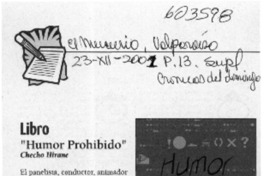 603598
El Mercurio, Valparaíso
23-XII-2001 P.13. Supl.
Crónicas del domingo
Libro
"Humor Prohibido"
Checho Hirane
El panelista, conductor, animador
Humor